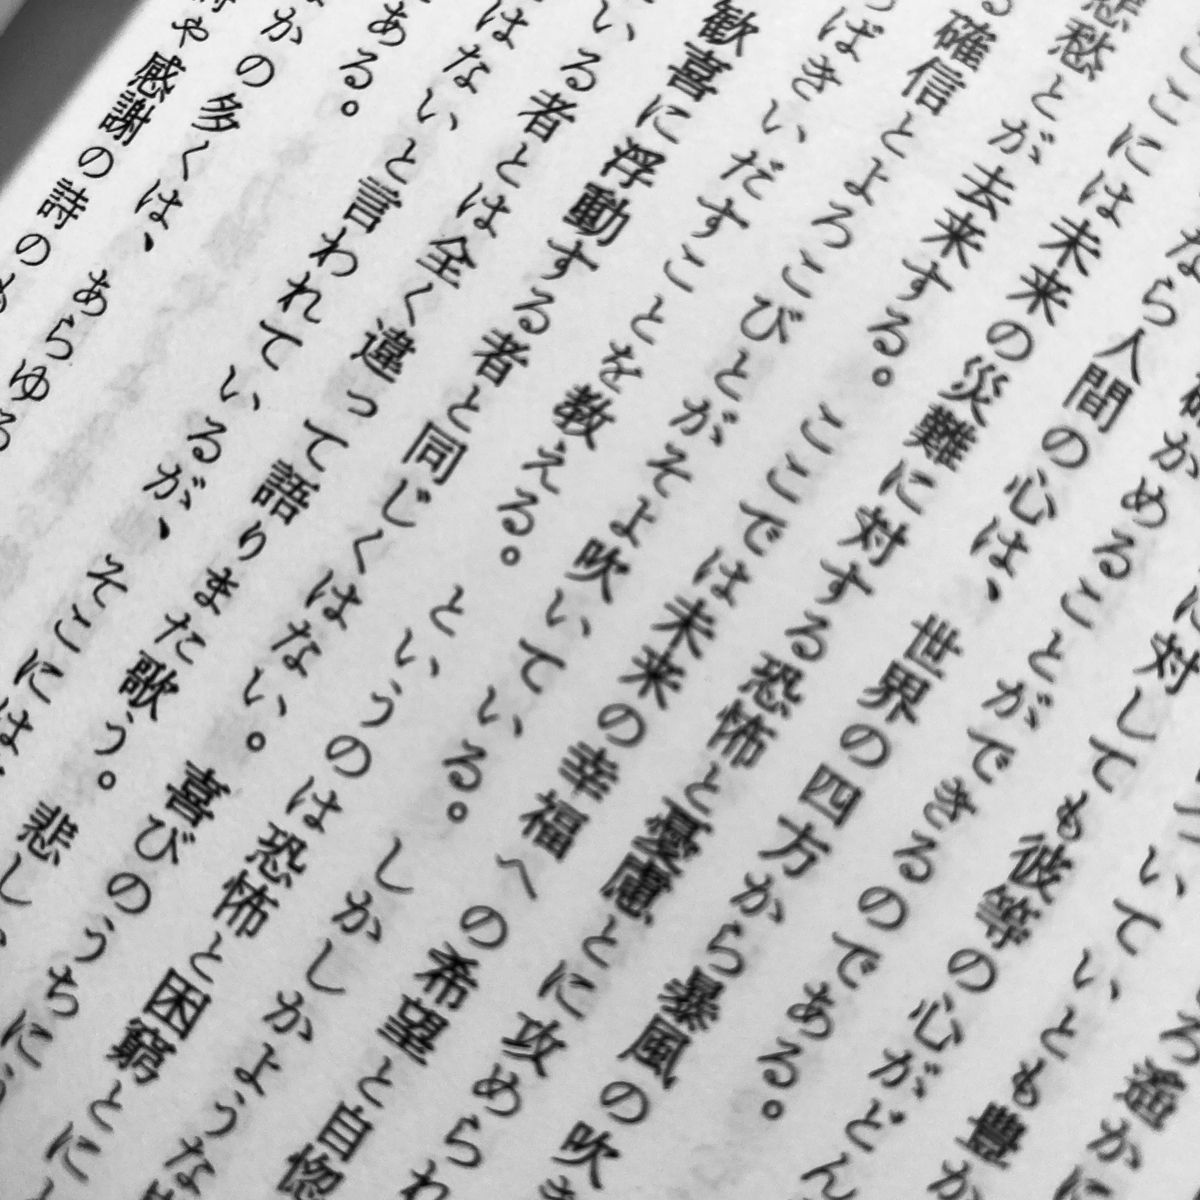 ろ遥かに
ついていとも豊か
に対しても彼等の心がどん
確かめることができるのである。
なら人間の心は、世界の四方から暴風の吹き
ここには未来の災難に対する恐怖と憂慮とに攻められ
悲愁とが去来する。ここでは未来の幸福への希望と自惚
る確信とよろこびとがそよ吹いている。しかしかような
ばきいだすことを教える。というのは恐怖と困窮とに
歓喜に浮動する者と同じくはない。喜びのうちに
いる者とは全く違って語りまた歌う。悲し
はないと言われているが、そこには
ある。
かの多くは、あらゆる
や感謝の詩の